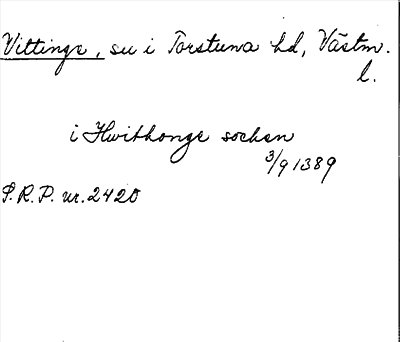 Vittinge, su i Torstuna hd, Västm.
l.
i Hwithonge sochen
3/9 1389
S.R.P. nr. 2420